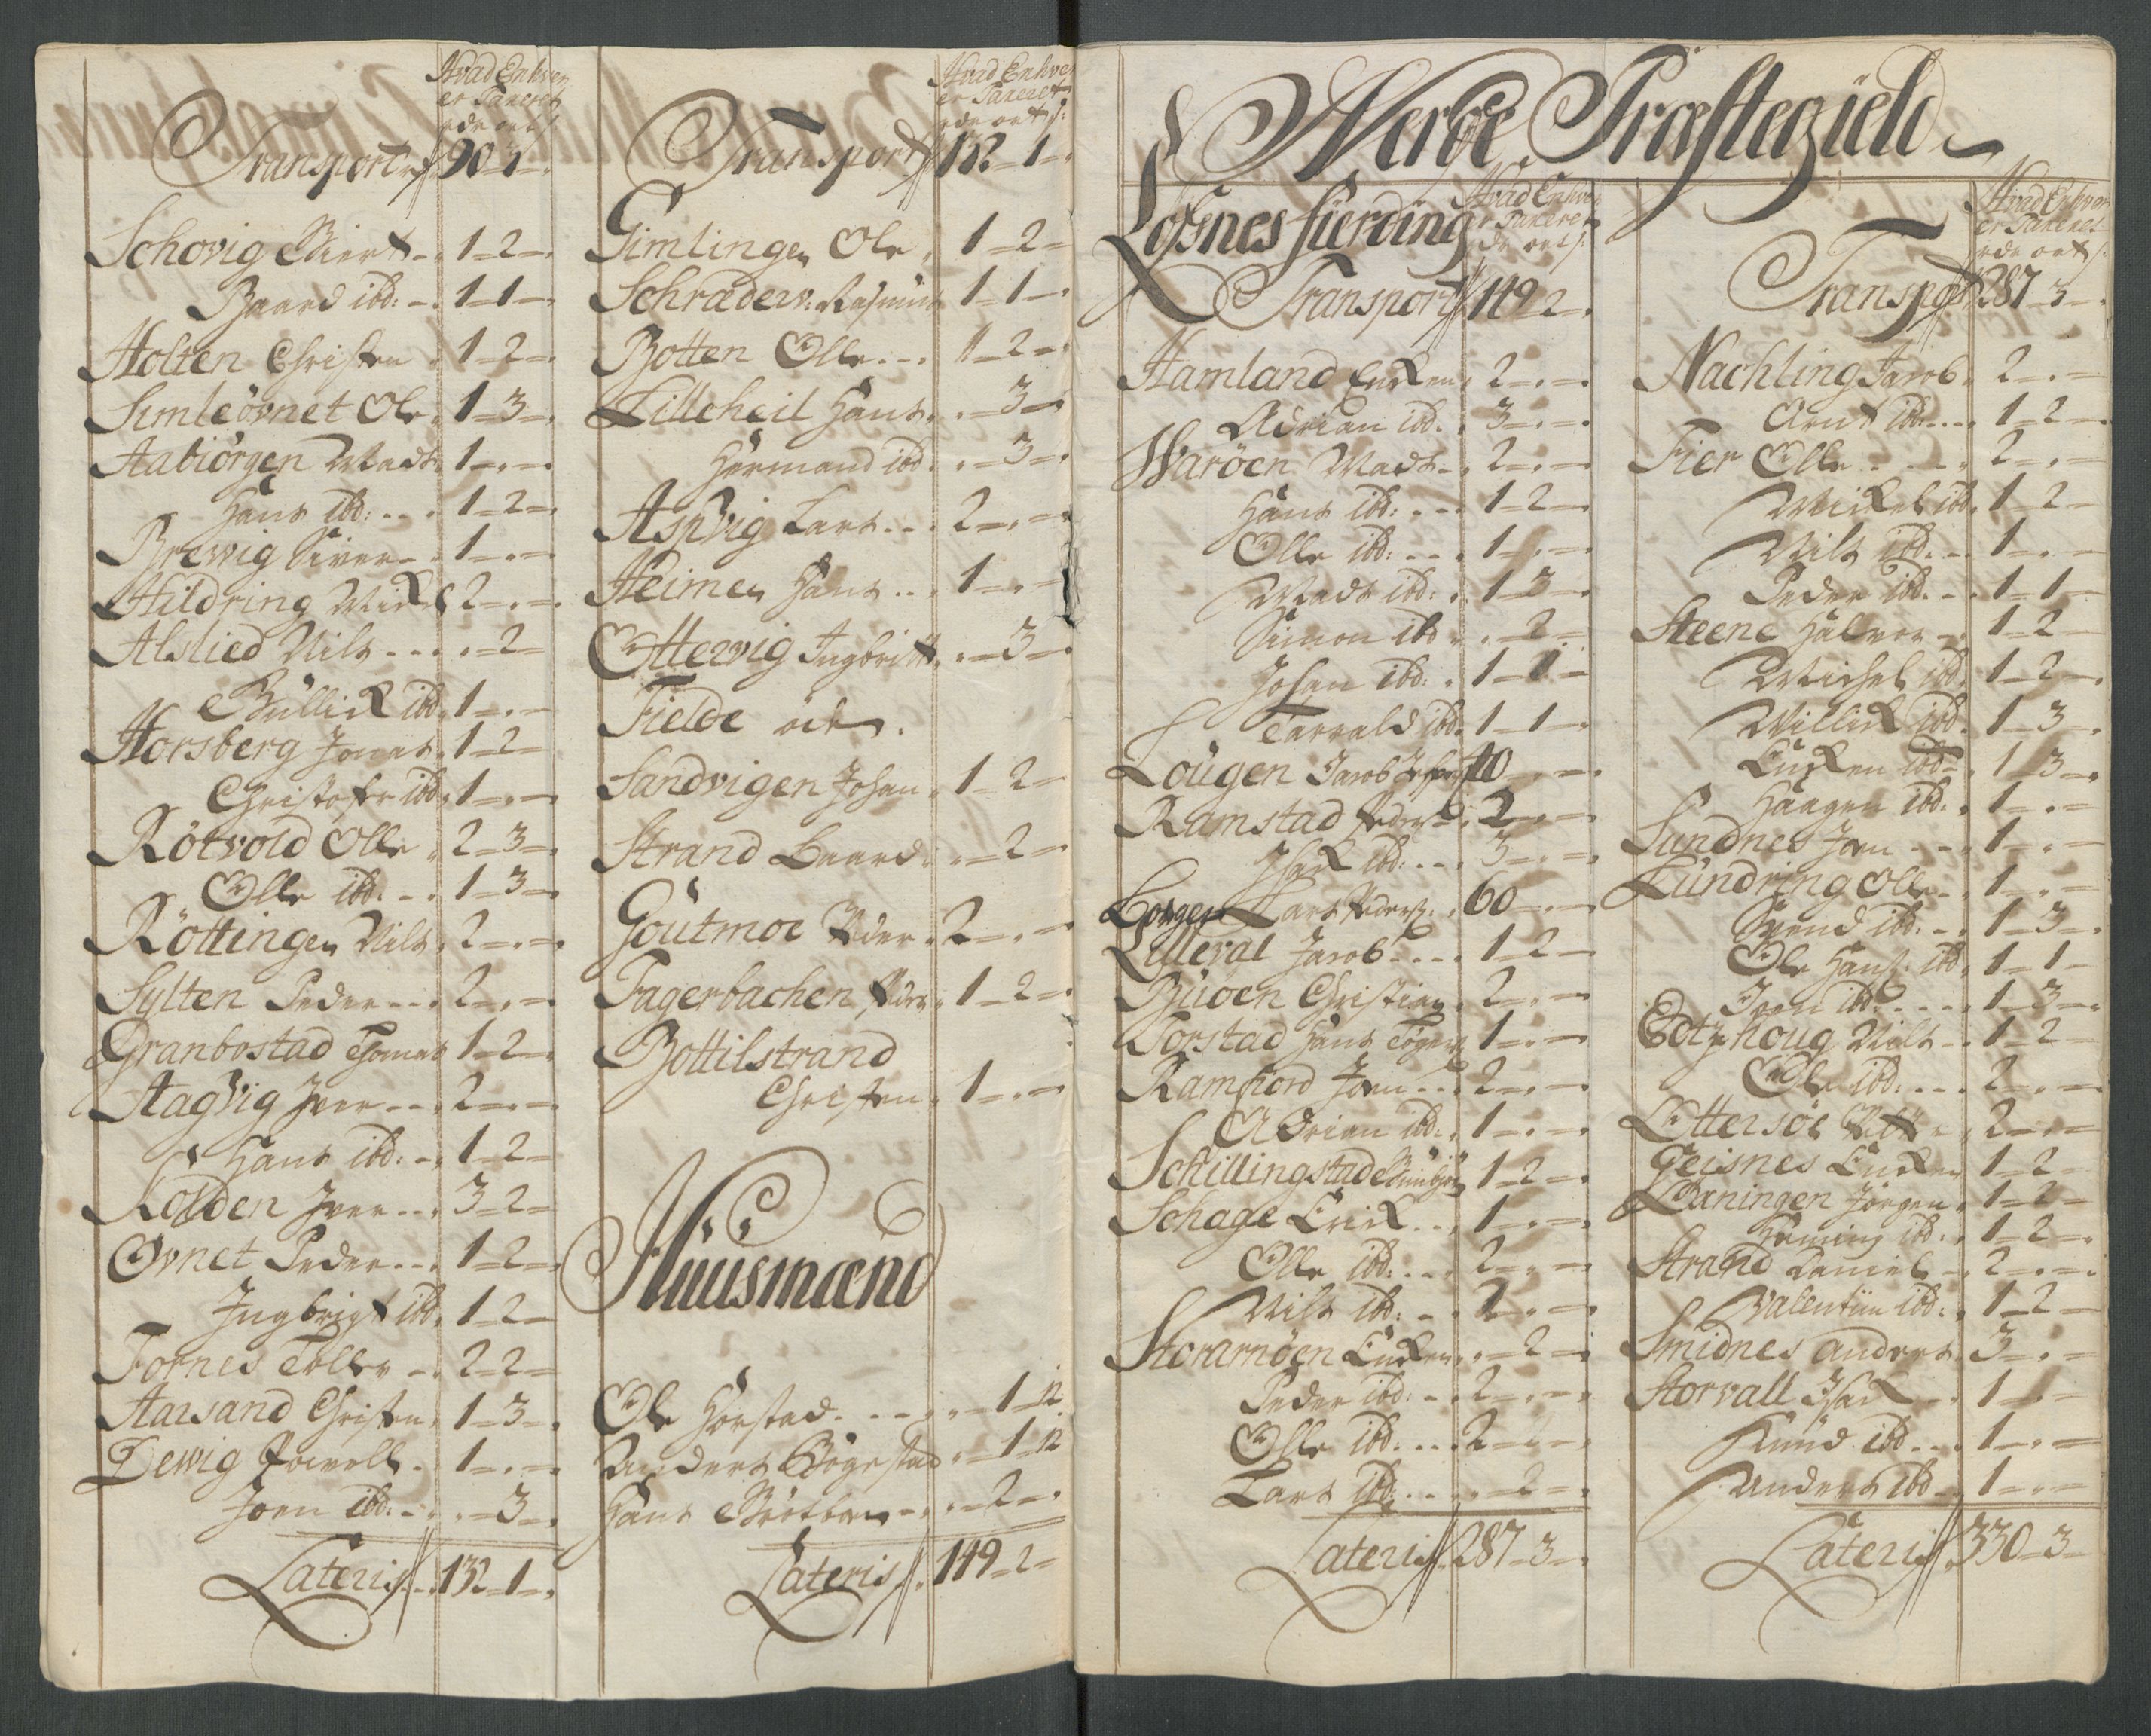 Hvad Enhver
er Taxeret
rdr ort s:
Transport 90-3-.
Schovig Biert - 1-2-.
Baard ibd: - 1-1-.
Holten Christen . 1-2-.
Simleövnet Ole . 1-3-.
Aabiörgen Madts 1-.-.
Hans ibd: . . . 1-2-.
Brewig Siver . . 1-.-.
Hildring Mickel 2-.-.
Alslied Nils . . . .-2-
Büllick ibd. 1-.-
Horsberg Jonas . 1-2-
Christoffer ibd. 1-.-.
Rötvold Olle . 2-3-.
Olle ibd. . . 1-3-.
Röttingen Nils . 2-.-.
Sylten Peder . . . 2-.-.
Granbostad Thomas 1-2-.
Aagvig Iver . . . 2-.-.
Hans ibd: . . 1-2-
Kolden Iver . . . 3-2-
Ovnet Peder . . . 1-2-.
Ingbrigt ibd. 1-2-
Fornes Toller - . 2-2-
Aarsand Christen . 1-3-.
Dewig Povell . . 1-.-.
Joen ibd: - . .-3-.
Lateris . . 132-1-.
Hvad Enhver
er Taxeret
rdr ort s:
Transport 132-1-.
Gimlingen Ole . 1-2-
Schræder: Rasmus 1-1-.
Botten Olle . . . 1-2-.
Lilleheil Hans . .-3-
Hermand ibd. .-3-.
Aspvig Lars . . . 2-.-.
Heimen Hans . . . 1-.-
Otterwig Ingbrigt . .-3-.
Fielde öde .
Sandvigen Johan . 1-2-
Strand Baard . .-2-
Goutmoe Peder . 2-.-
Fagerbachen Peder . 1-2-.
Bottilstrand
Christen . 1-.-
Huusmænd
Ole Horstad . . . . .-1-12
Anders Bögestad .-1-12
Hans Bötten - . .-2-.
Lateris . 149-2-
Nerøe Præstegield
Lofsnes fierding
Hvad Enhver
er Taxeret
rdr ort s:
Transport 149-2-.
Hamland Enken . 2-.-.
Adrian ibd. . 3-.-.
Waröen Mads - . 2-.-.
Hans ibd: . . . 1-2-.
Olle ibd: . . . 1-.-.
Mads ibd: . . 1-3-.
Simon ibd . .-2-
Johan ibd: . 1-1-
Tarrald ibd. 1-1-.
Lougen Jacob 10-.-.
Ramstad Peder . 2-.-
Isack ibd: . . . 3-.-.
Lovgen Lars Peders: . 60-.-
Lilleval Jacob . . . . 1-2-.
Büoen Christian . 2-.-.
Torstad Hans 1-.-
Ramfiord Joen . . . 2-.-.
Adrian ibd. . 1-.-.
Schillingstad 1-2-.
Schage Erick . . . 1-.-.
Olle ibd. . . . 2-.-
Nils ibd: . . 2-.-
Storarnöen Encken . .-2-
Peder ibd: - . 2-.-.
Olle ibd: . . . 2-.-.
Lars ibd: . . . .-2-.
Lateris 287-3-.
Hvad Enhver
er Taxeret
rdr ort s:
Transport 287-3-.
Nachling Jacob . 2-.-
Arnt ibd: . . . 1-2-.
Fier Olle . . . . . 2-.-
Mickel ibd. 1-2-
Nils ibd: - . 1-.-
Peder ibd. . . 1-1-
Steene Halvor - . 1-2-
Michel ibd. 1-2-.
Willick ibd. 1-3-.
Encken ibd. . 1-3-.
Haagen ibd: . 1-.-
Sundnes Joen . . . 1-.-
Lundring Olle - . 1-.-
Svend ibd. . . 1-3-.
Ole Hans: ibd. 1-1-
Joen ibd . . . 1-3-.
houg Niels - . 1-2-
Ole ibd: . . . 2-.-.
Ottersöe 2-.-
Geisnes Encken 1-2-
Waningen Jörgen . 1-2-
Heming ibd: . 1-2-.
Strand Daniel - . 2-.-.
Valentin ibd: . 1-2-
Smidnes Anders . 3-.-
Storvall Isack - . 1-.-
Knud ibd . . . 1-.-
Anders ibd . . 1-.-
Lateris 330-3-